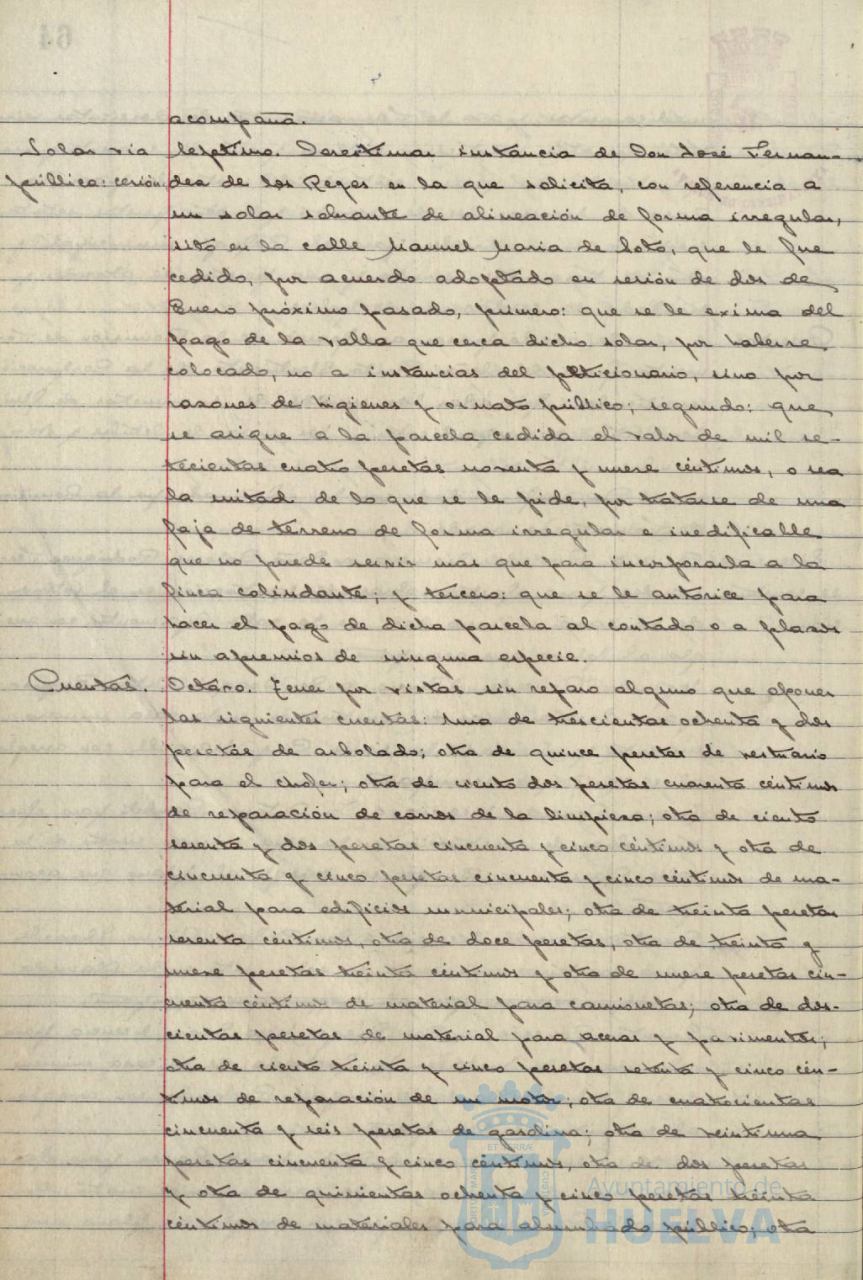 acompaña.
Solar vía
pública: cesión.
Septimo. Desestimar instancia de Don José Fernan-
dez de los Reyes en la que solicita, con referencia a
un solar sobrante de alineación de forma irregular,
sito en la calle Manuel Maria de Soto, que le fue
cedido, por acuerdo adoptado en sesión de dos de
Enero próximo pasado, primero: que se le exima del
pago de la valla que cerca dicho solar, por haberse
colocado, no a instancias del peticionario, sino por
razones de higienes y ornato público; segundo: que
se asigne a la parcela cedida el valor de mil se-
tecientas cuatro pesetas noventa y nueve céntimos, o sea
la mitad de lo que se le pide, por tratarse de una
faja de terreno de forma irregular e inedificable
que no puede servir mas que para incorporarla a la
finca colindante; y tercero: que se le autorice para
hacer el pago de dicha parcela al contado o a plazos
sin apremios de ninguna especie.
Cuentas.
Octavo. Tener por vistas sin reparo alguno que oponer
las siguientes cuentas: una de trescientas ochenta y dos
pesetas de arbolado; otra de quince pesetas de vestuario
para el chofer; otra de ciento dos pesetas cuarenta céntimos
de reparación de carros de la limpieza; otra de ciento
sesenta y dos pesetas cincuenta y cinco céntimos y otra de
cincuenta y cinco pesetas cincuenta y cinco céntimos de ma-
terial para edificios municipales; otra de treinta pesetas
sesenta céntimos, otra de doce pesetas, otra de treinta y
nueve pesetas treinta céntimos y otra de nueve pesetas cin-
cuenta céntimos de material para camionetas; otra de dos-
cientas pesetas de material para aceras y pavimentos;
otra de ciento treinta y cinco pesetas setenta y cinco cén-
timos de reparación de un motor; otra de cuatrocientas
cincuenta y seis pesetas de gasolina; otra de veintiuna
pesetas cincuenta y cinco céntimos, otra de dos pesetas
y otra de quinientas ochenta y cinco pesetas treinta
céntimos de materiales para alumbrado público; otra
Ayuntamiento de
HUELVA